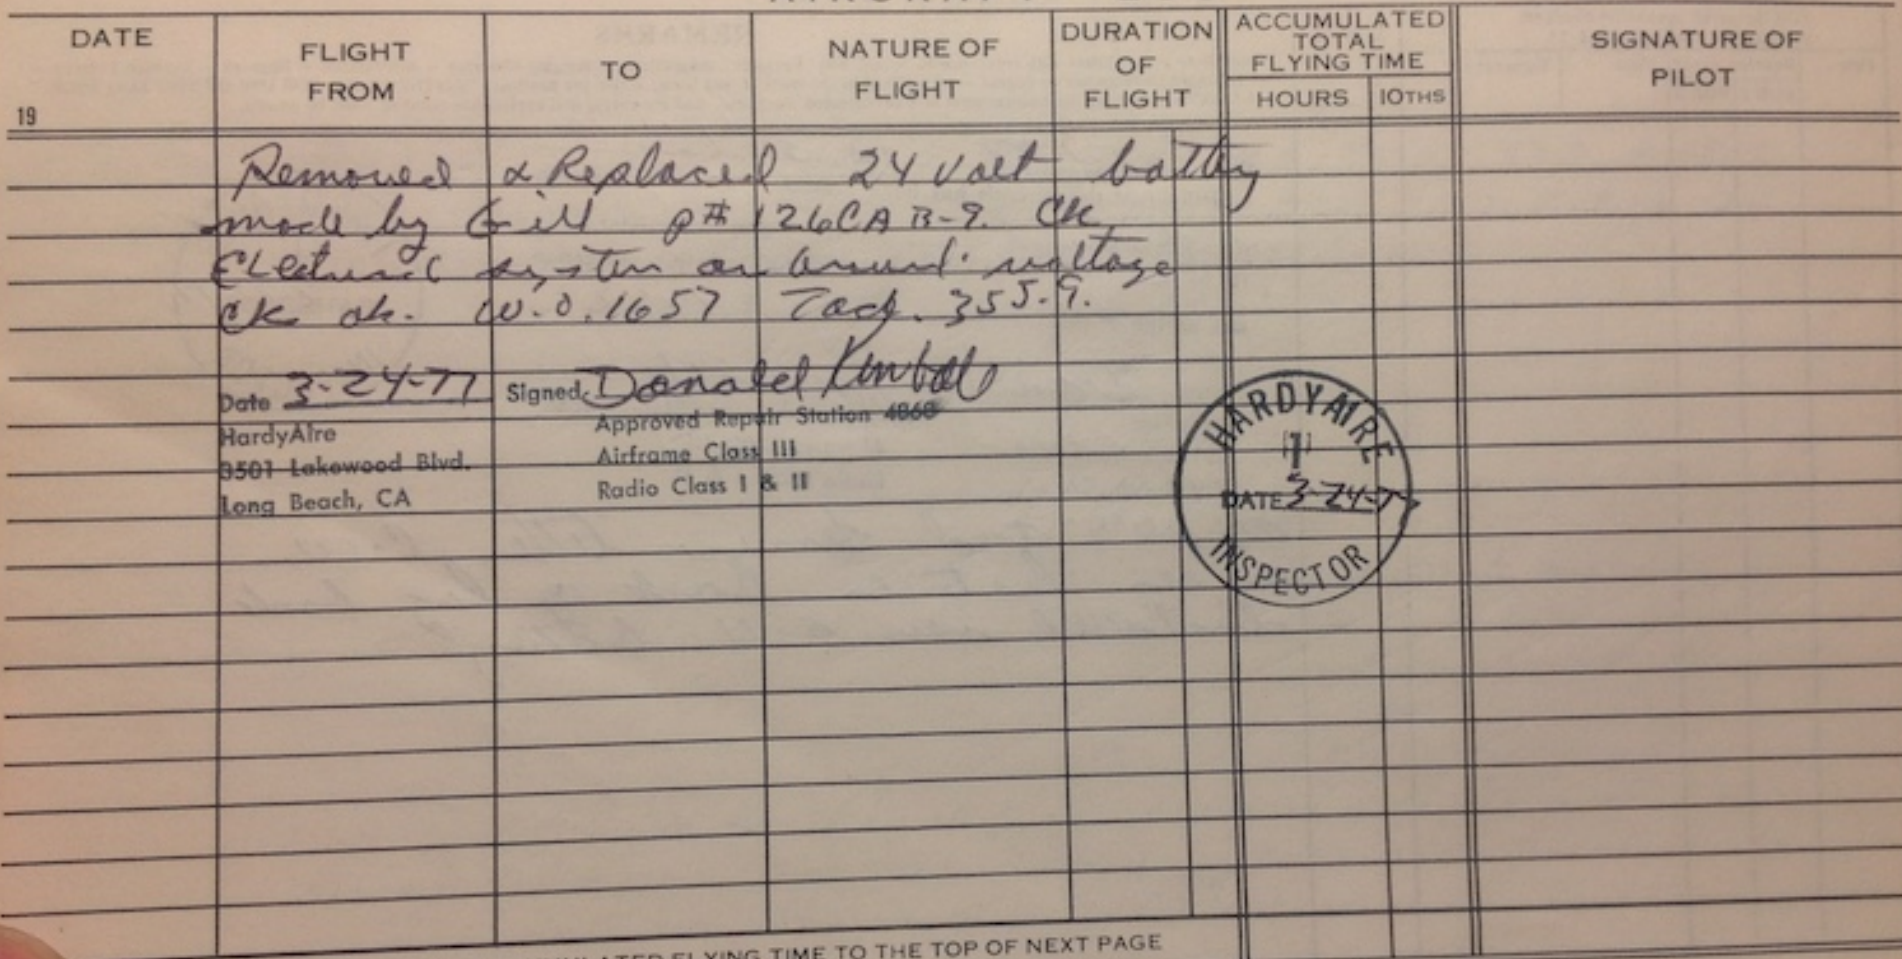 DATE
19
FLIGHT FROM
TO
NATURE OF FLIGHT
DURATION OF FLIGHT
ACCUMULATED TOTAL FLYING TIME
HOURS 10THS
SIGNATURE OF PILOT
Removed & Replaced 24 Volt battery
made by Gill p# 126CAB-9. CK
Electrical system on aircraft. voltage
CK ok. W.O. 1657 Tach. 355.9.
Date 3-24-77 Signed Donald
HardyAire
3501 Lakewood Blvd.
Long Beach, CA
Approved Repair Station 4868
Airframe Class III
Radio Class I & II
HARDYAIRE
1
DATE 3-24-77
INSPECTOR
FLYING TIME TO THE TOP OF NEXT PAGE